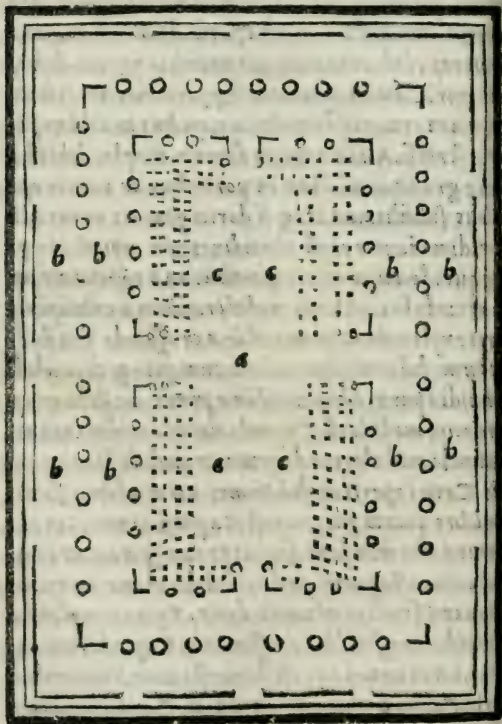 b b c c b b
a
b b c c b b